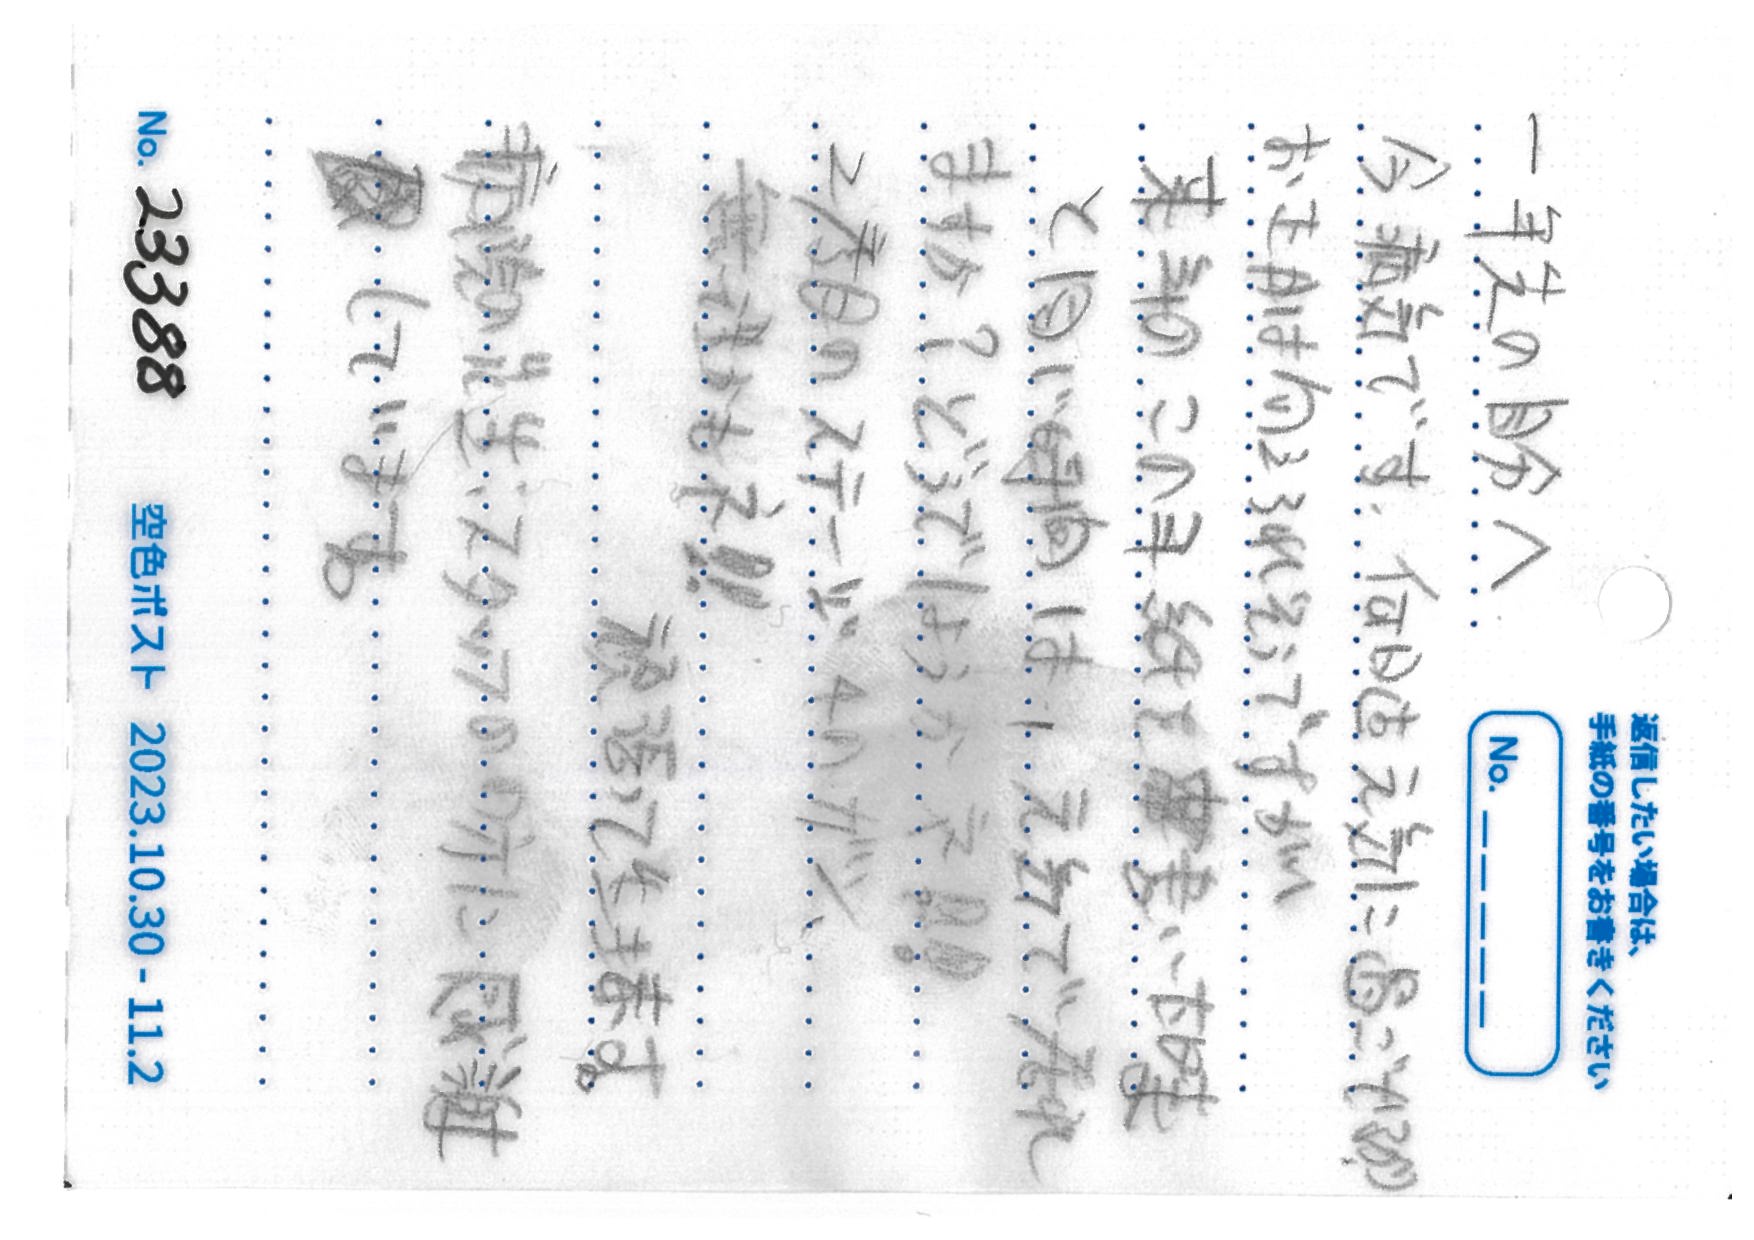 返信したい場合は、
手紙の番号をお書きください
No. _ _ _ _ _
一年先の自分へ
今病気です、何日迄元気に過ごせるか?
お正月は向えられそうですが、
来年のこの手紙を書いた時ま
と同じ時間は、元気で居れ
ますか?どうでしょうかネ!!
2度目のステージ4のガン、
無理かもネ!!
頑張って生きます。
病院の先生、スタッフの方に感謝
しています。
No. 23388
空色ポスト 2023.10.30 - 11.2